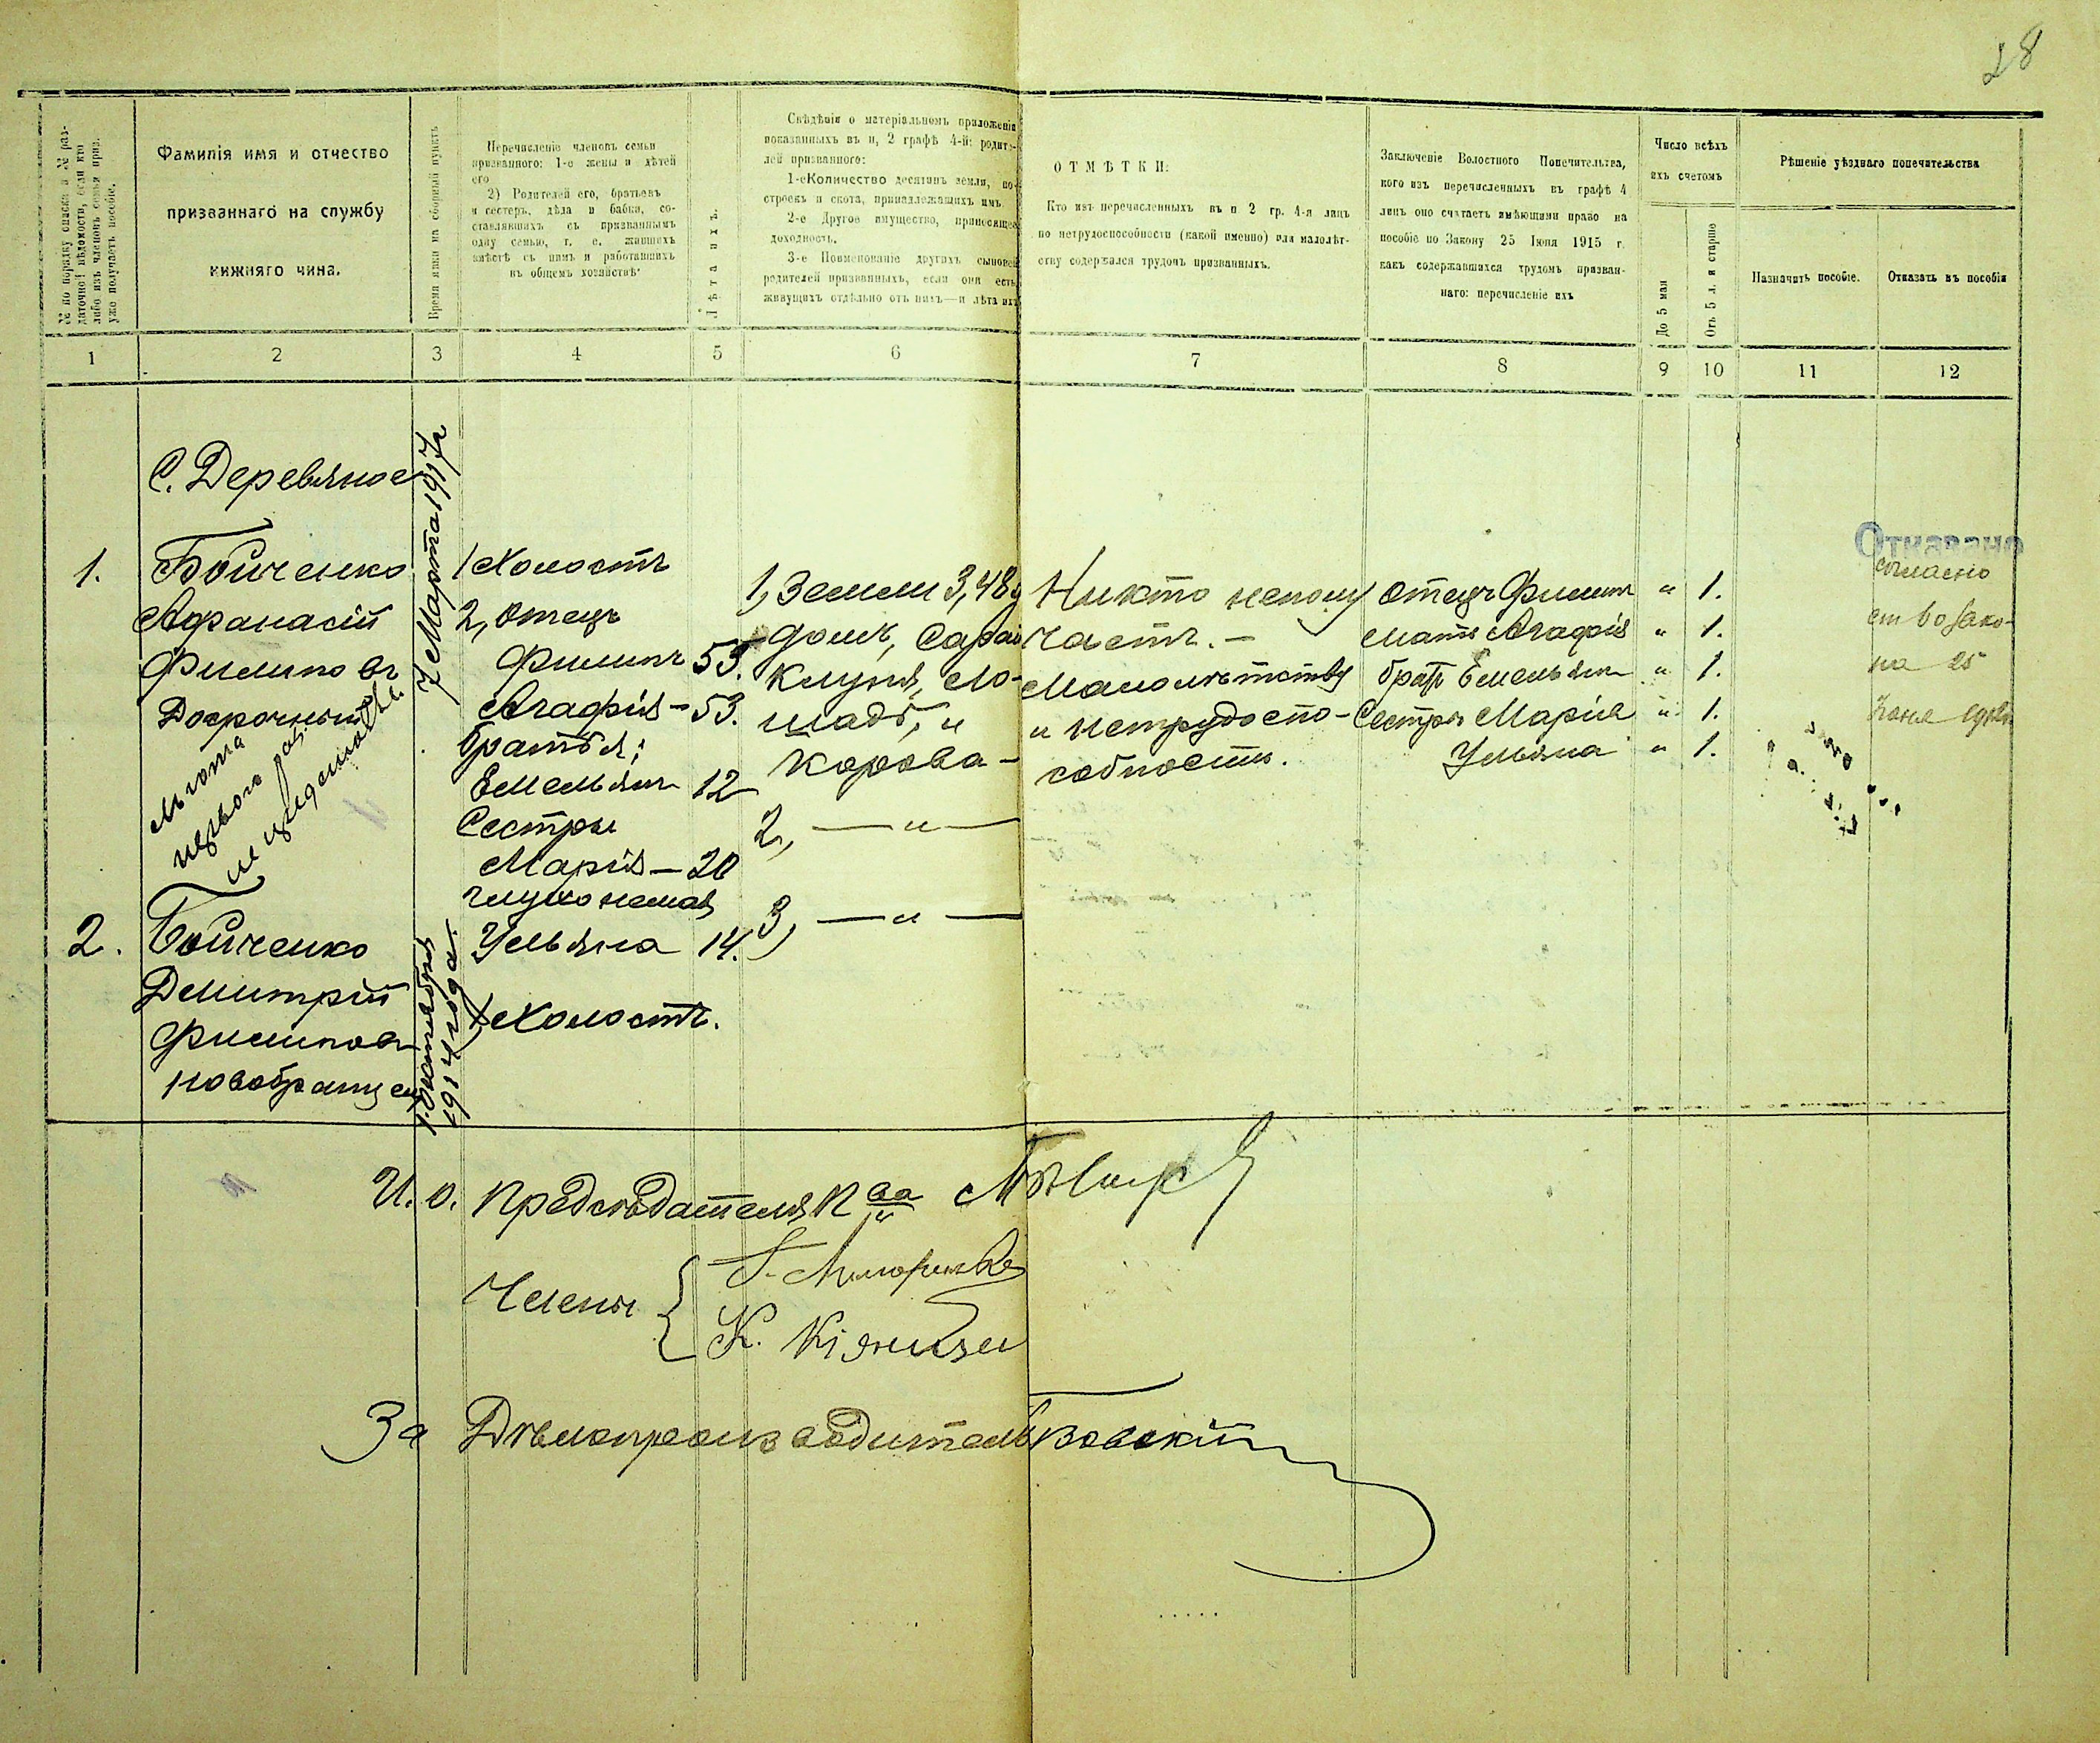 28
№ по порядку списка и № раз-
даточной вѣдомости, если кто
либо изъ членовъ семьи приз.
уже получаетъ пособіе.
Фамилія имя и отчество
призваннаго на службу
нижняго чина.
Время явки на сборный пунктъ
Перечисленіе членовъ семьи
призваннаго: 1-е жены и дѣтей
его
2) Родителей его, братьевъ
и сестеръ, дѣда и бабки, со-
ставлявшихъ съ призваннымъ
одну семью, т. е. жившихъ
вмѣстѣ съ нимъ и работавшихъ
въ общемъ хозяйствѣ
Лѣта ихъ.
Свѣдѣнія о матеріальномъ положеніи
показанныхъ въ п, 2 графѣ 4-й: родите-
лей призваннаго:
1-е Количество десятинъ земли, по-
строекъ и скота, принадлежащихъ имъ
2-е Другое имущество, приносящее
доходность.
3-е Поименованіе другихъ сыновей
родителей призванныхъ, если они есть
живущихъ отдѣльно отъ нихъ—и лѣта ихъ
ОТМѢТКИ:
Кто изъ перечисленныхъ въ п 2 гр. 4-й лицъ
по нетрудоспособности (какой именно) или малолѣт-
ству содержался трудомъ призванныхъ.
Заключеніе Волостного Попечительства,
кого изъ перечисленныхъ въ графѣ 4
лицъ оно считаетъ имѣющими право на
пособіе по Закону 25 Іюня 1915 г.
какъ содержавшихся трудомъ призван-
наго: перечисленіе ихъ
Число всѣхъ
ихъ счетомъ
До 5 мая
Отъ 5 л. и старше
Рѣшеніе уѣзднаго попечительства
Назначить пособіе.
Отказать въ пособіи
1 2 3 4 5 6 7 8 9 10 11 12
С. Деревяное
1.
Бойченко
Афанасій
Филиповъ
Досрочный
льгота
перваго раз.
7 Марта 1917 г
1 Холостъ
2, Отецъ
Филипъ 53.
Агафія — 53.
братья:
Емельянъ 12
Сестры
Марія — 20
глухонемая
Ульяна 14.
1, Земли 3,48
домъ, Сарай
Клуня, Ло-
шадь, и
корова —
2, — „ —
3, — „ —
Никто неполу
чаетъ. —
Малолѣтству
и нетрудоспо-
собности.
Отецъ Филипъ „ 1.
Мать Агафія „ 1.
братъ Емельянъ „ 1.
Сестры Марія „ 1.
Ульяна „ 1.
Отказано
согласно
на 25
2.
Бойченко
Дмитрій
Филиповъ
новобранецъ
1 Октября
1914 года.
1) Холостъ.
И. о. Предсѣдателя П ва
Члены
К.
За Дѣлопроизводитель